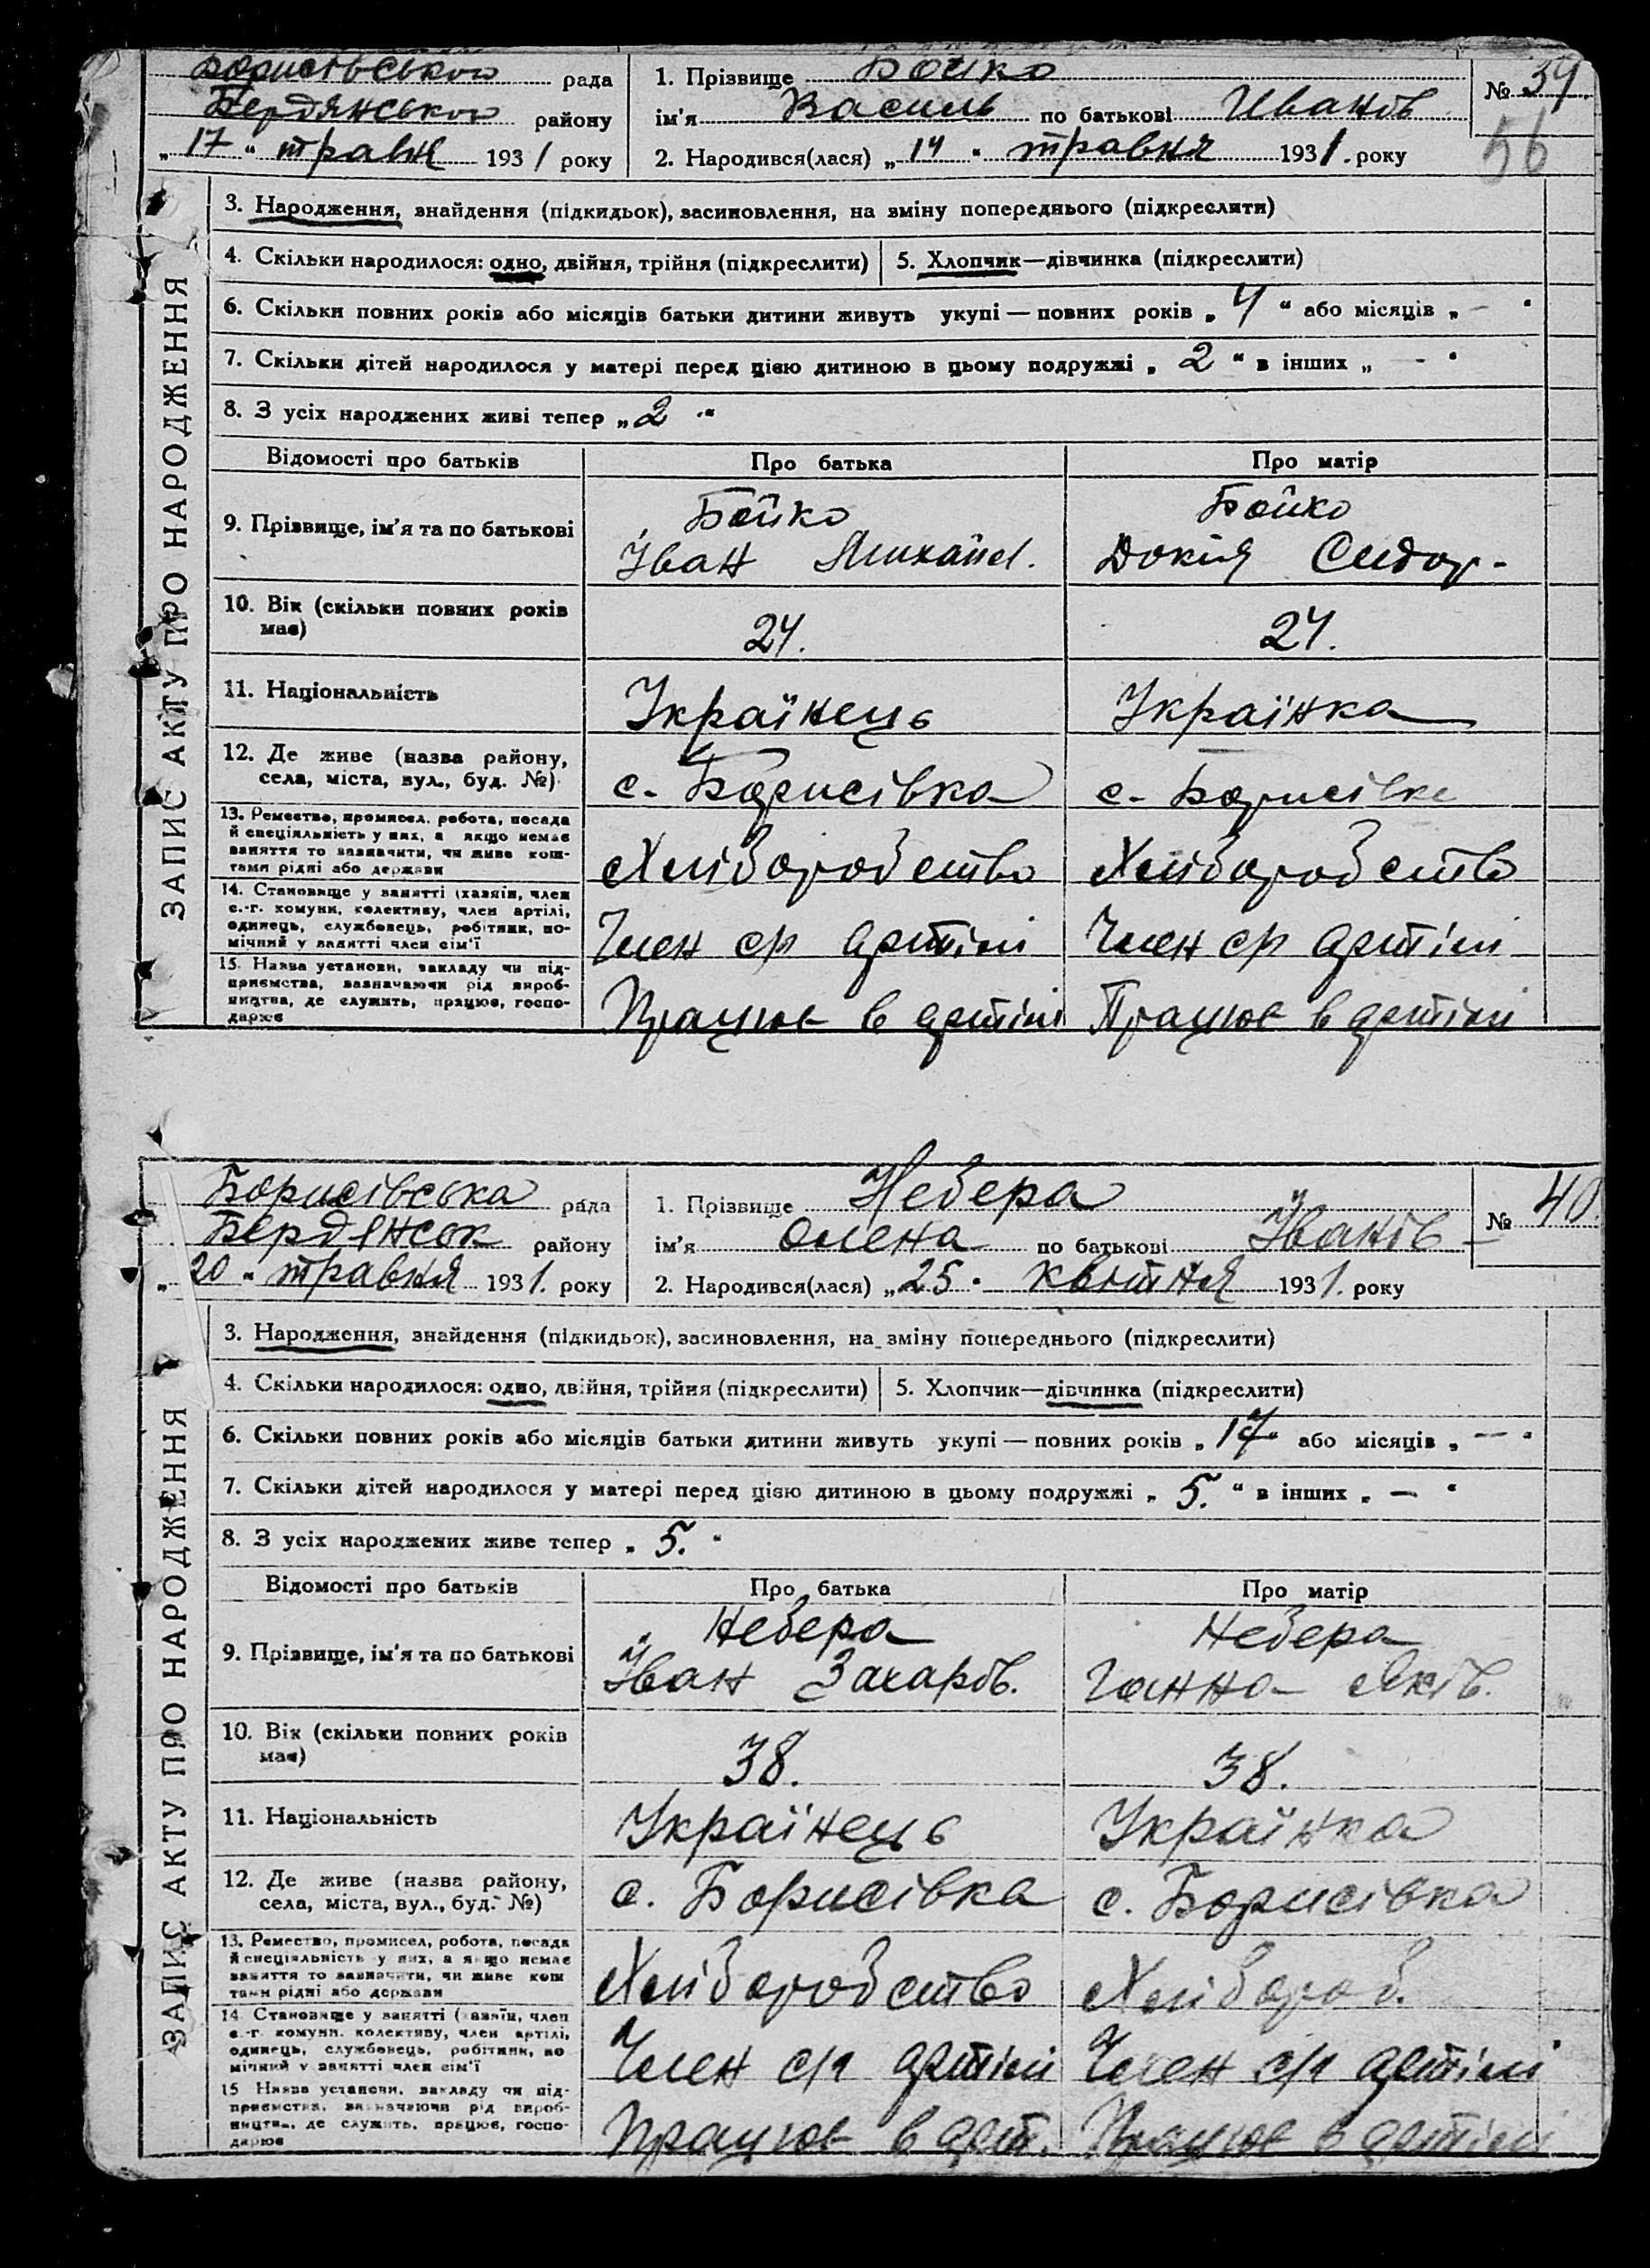 Борисівською рада
Бердянською району
„17“ травня 1931 року
1. Прізвище Бойко
ім'я Василь по батькові Иванов
2. Народився(лася) „14“ травня 1931. року
№ 39.
56
ЗАПИС АКТУ ПРО НАРОДЖЕННЯ
3. Народження, знайдення (підкидьок), засиновлення, на зміну попереднього (підкреслити)
4. Скільки народилося: одно, двійня, трійня (підкреслити) 5. Хлопчик—дівчинка (підкреслити)
6. Скільки повних років або місяців батьки дитини живуть укупі — повних років „4“ або місяців „—“
7. Скільки дітей народилося у матері перед цією дитиною в цьому подружжі „2“ в інших „—“
8. З усіх народжених живі тепер „2“
Відомості про батьків Про батька Про матір
9. Прізвище, ім'я та по батькові
Бойко Бойко
Іван Михайл. Докія Сидор.
10. Вік (скільки повних років має) 24. 24.
11. Національність Українець Українка
12. Де живе (назва району,
села, міста, вул., буд. №) с. Борисівка с. Борисівка
13. Ремество, промисел, робота, посада
й спеціяльність у них, а якщо немає
заняття то зазначити, чи живе кош-
тами рідні або держави
Хліборобство Хліборобство
14. Становище у занятті (хазяїн, член
с.-г. комуни, колективу, член артілі,
одинець, службовець, робітник, по-
мічний у занятті член сім'ї
Член с/г артілі Член с/г артілі
15. Назва установи, закладу чи під-
приємства, зазначаючи рід вироб-
ництва, де служить, працює, госпо-
дарює
Працює в артілі Працює в артілі
Борисівська рада
Бердянськ району
„20“ травня 1931. року
1. Прізвище Небера
ім'я Олена по батькові Іванів
2. Народився(лася) „25“ квітня 1931. року
№ 40.
ЗАПИС АКТУ ПРО НАРОДЖЕННЯ
3. Народження, знайдення (підкидьок), засиновлення, на зміну попереднього (підкреслити)
4. Скільки народилося: одно, двійня, трійня (підкреслити) 5. Хлопчик—дівчинка (підкреслити)
6. Скільки повних років або місяців батьки дитини живуть укупі — повних років „17“ або місяців „—“
7. Скільки дітей народилося у матері перед цією дитиною в цьому подружжі „5.“ в інших „—“
8. З усіх народжених живе тепер „5.“
Відомості про батьків Про батька Про матір
9. Прізвище, ім'я та по батькові
Небера Небера
Іван Захаров. Ганна Яків.
10. Вік (скільки повних років має) 38. 38.
11. Національність Українець Українка
12. Де живе (назва району,
села, міста, вул., буд. №) с. Борисівка с. Борисівка
13. Ремество, промисел, робота, посада
й спеціяльність у них, а якщо немає
заняття то зазначити, чи живе кош
тами рідні або держави
Хліборобство Хлібороб.
14. Становище у занятті (хазяїн, член
с.-г. комуни, колективу, член артілі,
одинець, службовець, робітник, по
мічний у занятті член сім'ї
Член с/г артілі Член с/г артілі
15 Назва установи, закладу чи під-
приємства, зазначаючи рід вироб-
ництва, де служить, працює, госпо-
дарює
Працює в арт. Працює в артілі